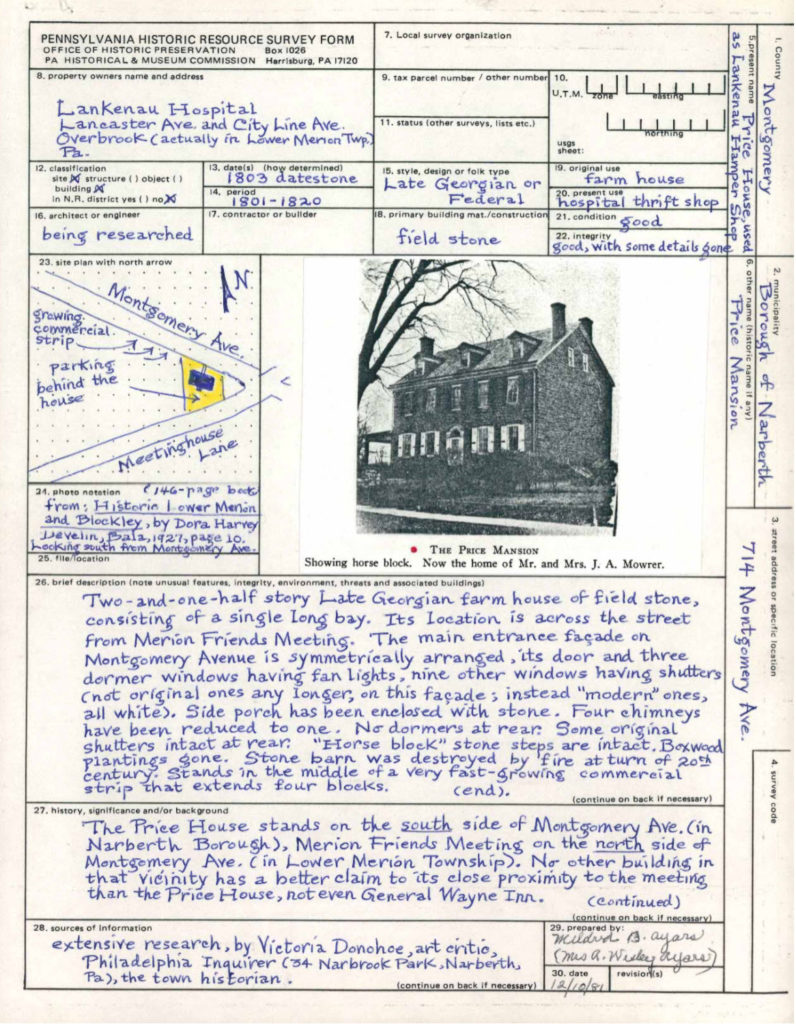 PENNSYLVANIA HISTORIC RESOURCE SURVEY FORM
OFFICE OF HISTORIC PRESERVATION Box 1026
PA HISTORICAL & MUSEUM COMMISSION Harrisburg, PA 17120
7. Local survey organization
8. property owners name and address
Lankenau Hospital
Lancaster Ave. and City Line Ave.
Overbrook (actually in Lower Merion Twp.)
Pa.
9. tax parcel number / other number
10.
U.T.M.
zone easting
northing
usgs
sheet:
11. status (other surveys, lists etc.)
12. classification
site (X) structure ( ) object ( )
building (X)
in N.R. district yes ( ) no (X)
13. date(s) (how determined)
1803 datestone
14. period
1801-1820
15. style, design or folk type
Late Georgian or
Federal
19. original use
farm house
20. present use
hospital thrift shop
16. architect or engineer
being researched
17. contractor or builder
18. primary building mat./construction
field stone
21. condition
good
22. integrity
good, with some details gone
23. site plan with north arrow
N
Montgomery Ave.
growing
commercial
strip
parking
behind the
house
Meetinghouse
Lane
24. photo notation (146-page book)
from: Historic Lower Merion
and Blockley, by Dora Harvey
Develin, Bala, 1927, page 10.
Looking south from Montgomery Ave.
25. file/location
THE PRICE MANSION
Showing horse block. Now the home of Mr. and Mrs. J. A. Mowrer.
26. brief description (note unusual features, integrity, environment, threats and associated buildings)
Two-and-one-half story Late Georgian farm house of field stone,
consisting of a single long bay. Its location is across the street
from Merion Friends Meeting. The main entrance façade on
Montgomery Avenue is symmetrically arranged, its door and three
dormer windows having fan lights, nine other windows having shutters
(not original ones any longer, on this façade; instead "modern" ones,
all white). Side porch has been enclosed with stone. Four chimneys
have been reduced to one. No dormers at rear. Some original
shutters intact at rear. "Horse block" stone steps are intact. Boxwood
plantings gone. Stone barn was destroyed by fire at turn of 20th
century. Stands in the middle of a very fast-growing commercial
strip that extends four blocks. (end).
(continue on back if necessary)
27. history, significance and/or background
The Price House stands on the south side of Montgomery Ave. (in
Narberth Borough), Merion Friends Meeting on the north side of
Montgomery Ave. (in Lower Merion Township). No other building in
that vicinity has a better claim to its close proximity to the meeting
than the Price House, not even General Wayne Inn. (continued)
(continue on back if necessary)
28. sources of information
extensive research, by Victoria Donohoe, art critic,
Philadelphia Inquirer (34 Narbrook Park, Narberth,
Pa), the town historian.
(continue on back if necessary)
29. prepared by:
Mildred B. Ayars
(Mrs A. Wesley Ayars)
30. date
12/10/81
revision(s)
1. County
Montgomery
5. present name
Price House, used
as Lankenau Hamper Shop
2. municipality
Borough of Narberth
6. other name (historic name if any)
Price Mansion
3. street address or specific location
714 Montgomery Ave.
4. survey code